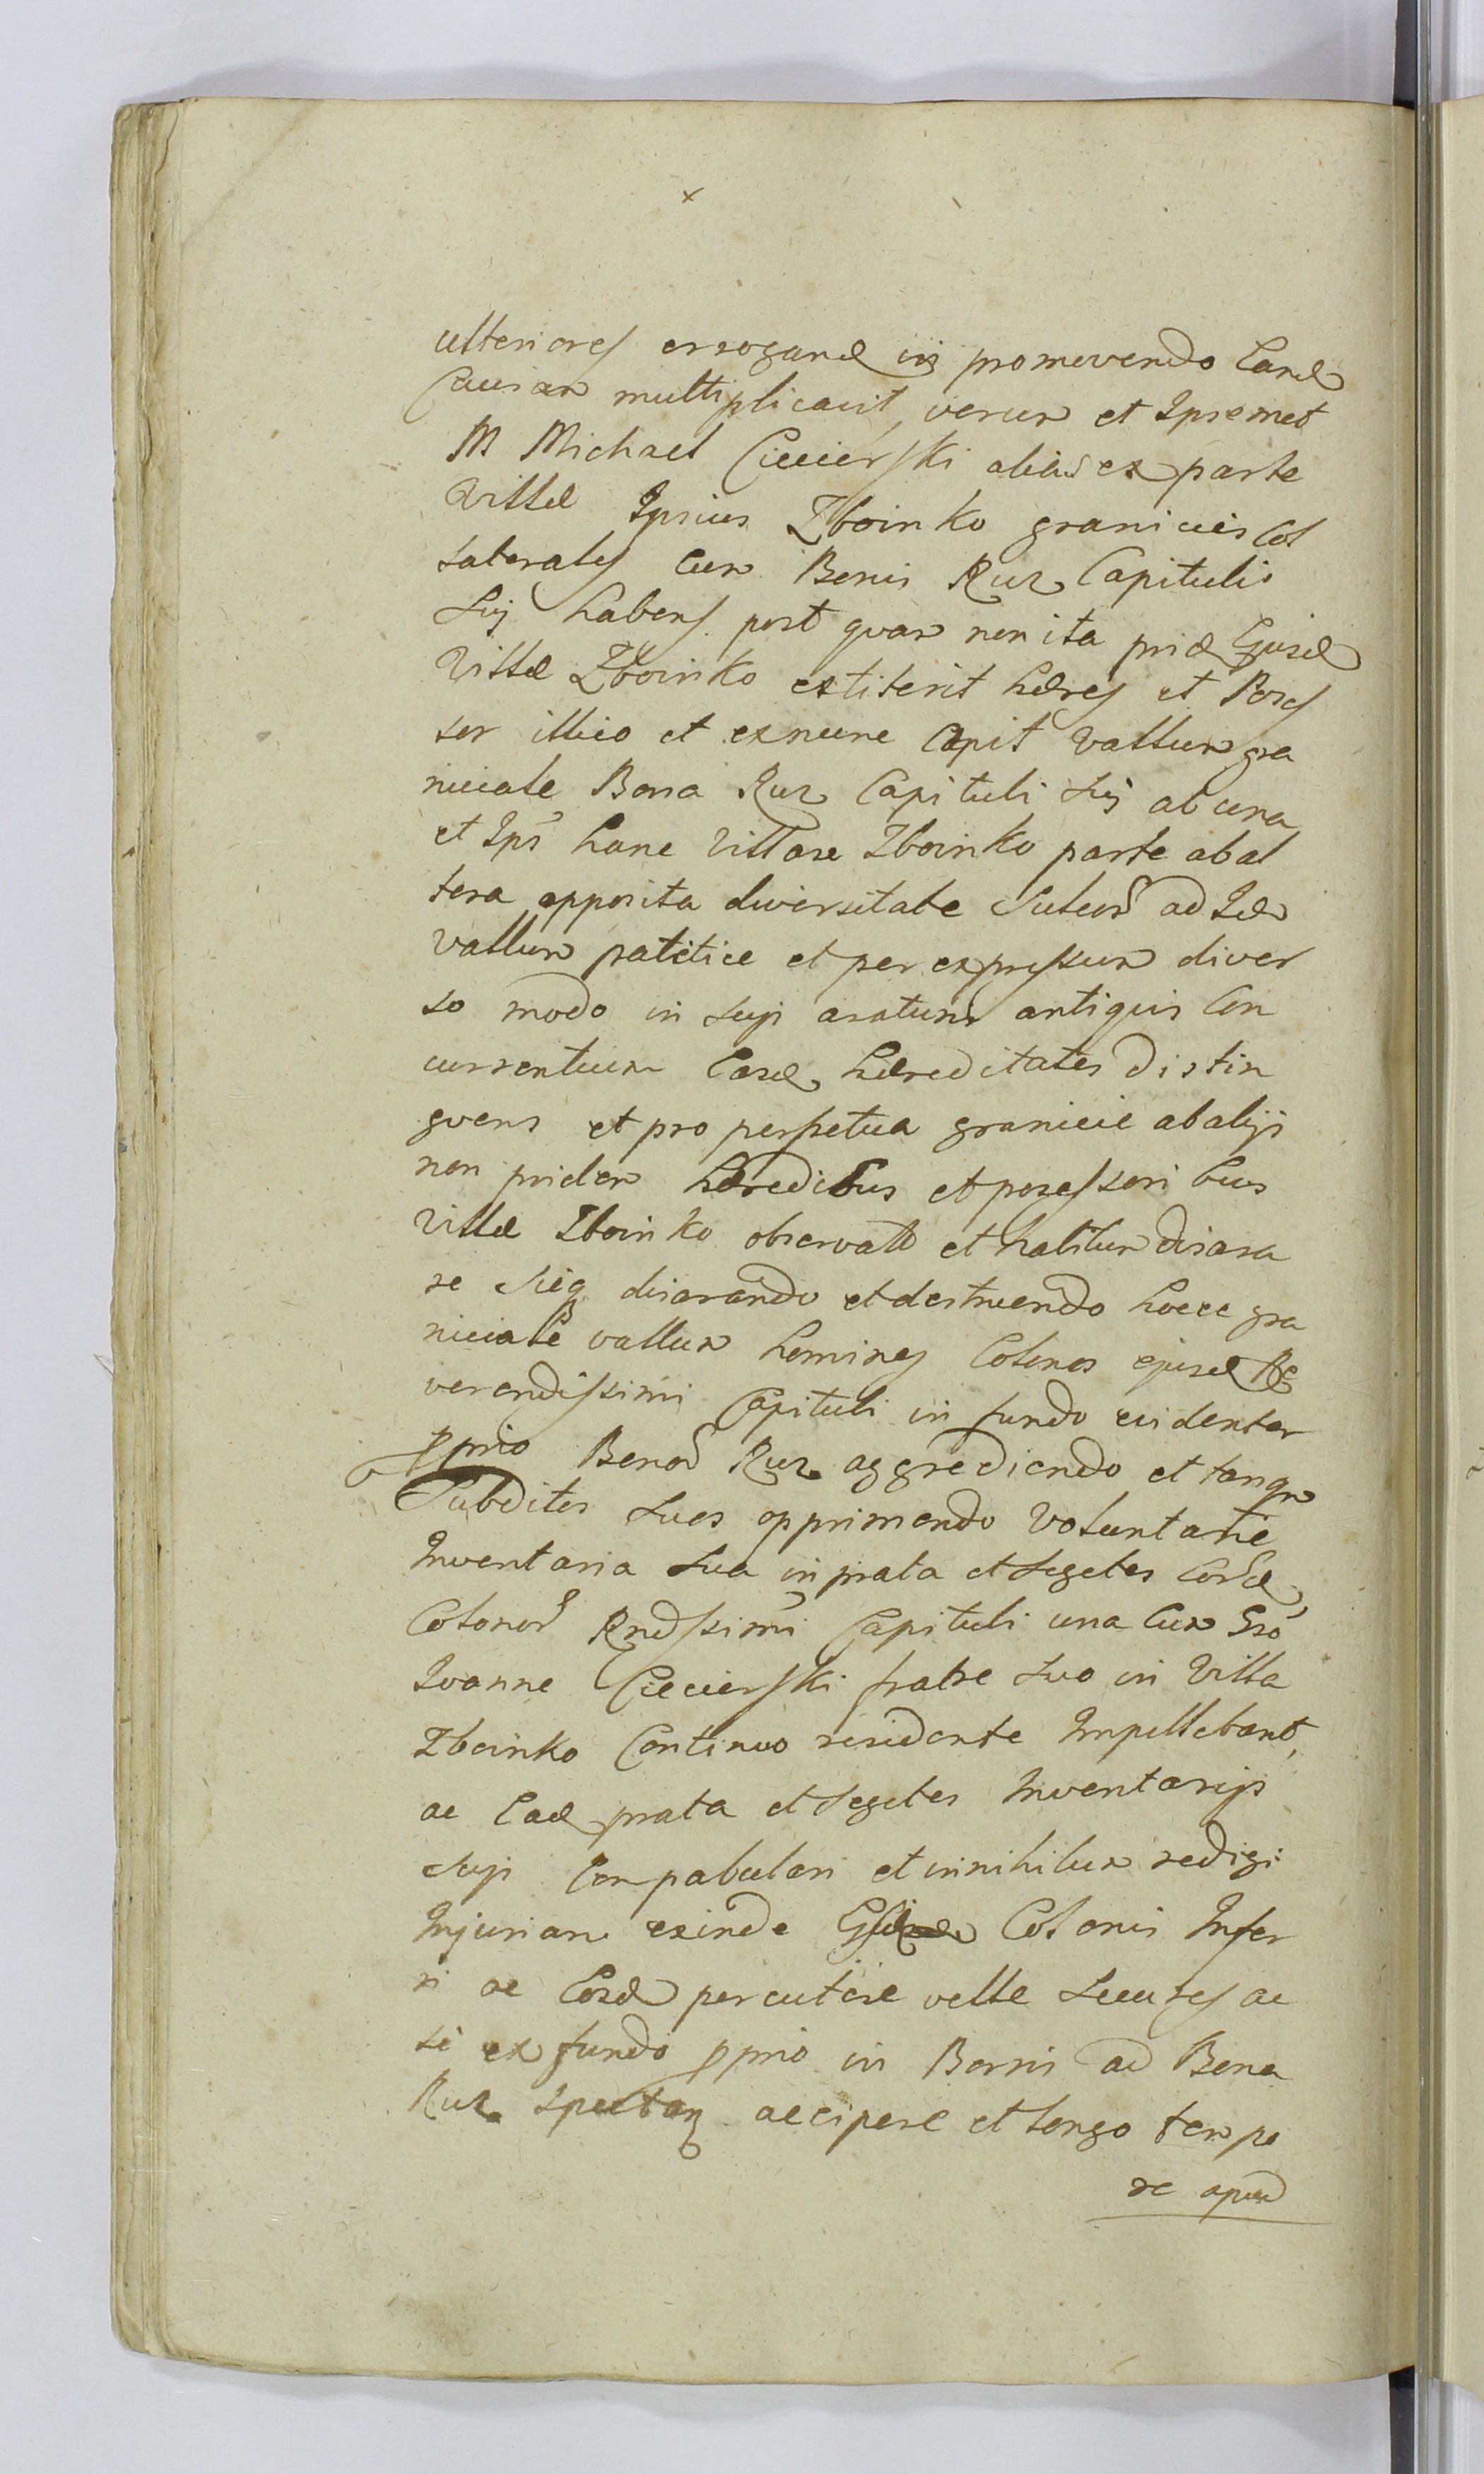 ulteriores erogand in promovendo Eand
Causam multiplicavit, verum et Ipsemet
M Michael Ciecierski alias ex parte
Villæ Ipsius Zboinko graniciēs Col
laterales cum Bonis Rur Capitulis
Luj habens post quam non ita prid Ejusd
Villæ Zboinko extiterit hæres et Posses
sor illico et exnunc Cæpit vallum gra
niciale Bona Rur Capituli Luj ab una
et Ips hanc Villam Zboinko parte ab al
tera opposita diversitate Sulcor ad Id
vallum patetice et per expressum diver
so modo in suji aratura antiquis Con
currentium Easd hæreditates distin
guens et pro perpetua granicie ab alijs
non pridem hæredibus et possessori bus
Villæ Zboinko observatt et habitum disara
re Sicq disarando et destruendo hocce gra
niciale vallum homines Colonos ejusd Re
verendissimi Capituli in fundo evidenter
pprio Bonor Rur aggrediendo et tanqm
Subditos Suos opprimendo Voluntarie
Inventaria Sua in prata et segetes Eord
Colonor Rndssimi Capituli una Cum Gso
Ioanne Ciecierski fratre Suo in Villa
Zboinko Continuo residente Impellebant,
ac Ead prata et segetes Inventarijs
Suji Compabulari et in nihilum redigi
Injuriam exinde Colonis Infer
ri ac Eosd percutere velle Secures ac
si ex fundo pprio in Borris ad Bona
Rur Spectan accipere et longo tempo
re apud